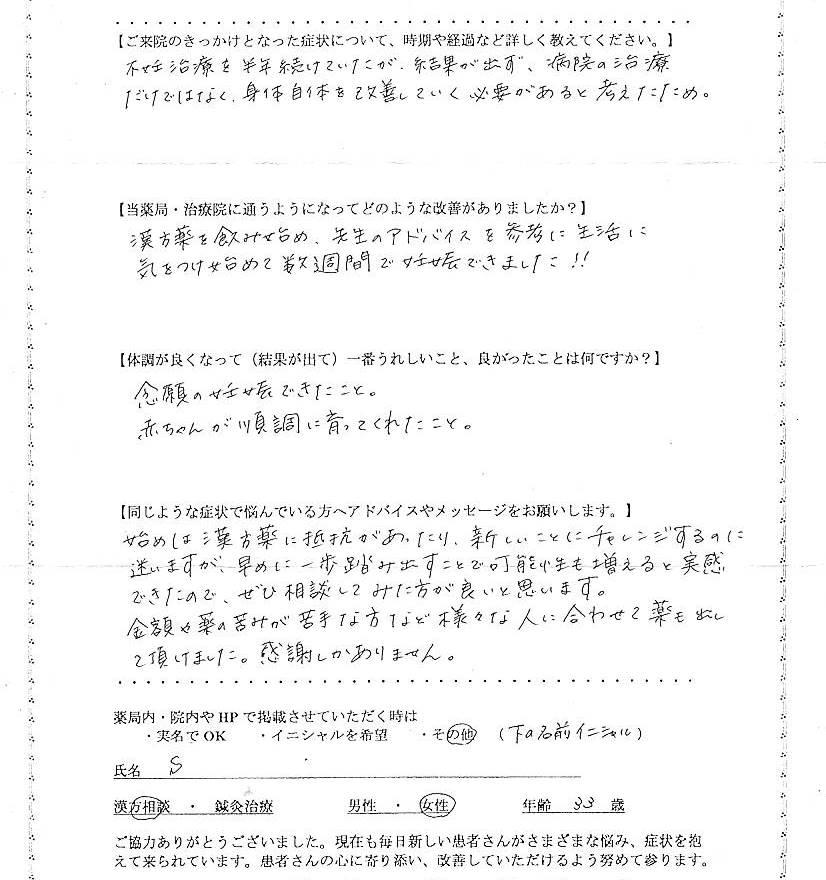 【ご来院のきっかけとなった症状について、時期や経過など詳しく教えてください。】
不妊治療を半年続けていたが、結果が出ず、病院の治療
だけではなく、身体自体を改善していく必要があると考えたため。
【当薬局・治療院に通うようになってどのような改善がありましたか？】
漢方薬を飲み始め、先生のアドバイスを参考に生活に
気をつけ始めて数週間で妊娠できました!!
【体調が良くなって（結果が出て）一番うれしいこと、良かったことは何ですか？】
念願の妊娠できたこと。
赤ちゃんが順調に育ってくれたこと。
【同じような症状で悩んでいる方へアドバイスやメッセージをお願いします。】
始めは漢方薬に抵抗があったり、新しいことにチャレンジするのに
迷いますが、早めに一歩踏み出すことで可能性も増えると実感
できたので、ぜひ相談してみた方が良いと思います。
金額や薬の苦みが苦手な方など様々な人に合わせて薬も出し
て頂けました。感謝しかありません。
薬局内・院内やHPで掲載させていただく時は
・実名でOK ・イニシャルを希望 ・その他 (下の名前イニシャル)
氏名 S
漢方相談 ・ 鍼灸治療 男性 ・ 女性 年齢 33 歳
ご協力ありがとうございました。現在も毎日新しい患者さんがさまざまな悩み、症状を抱
えて来られています。患者さんの心に寄り添い、改善していただけるよう努めて参ります。